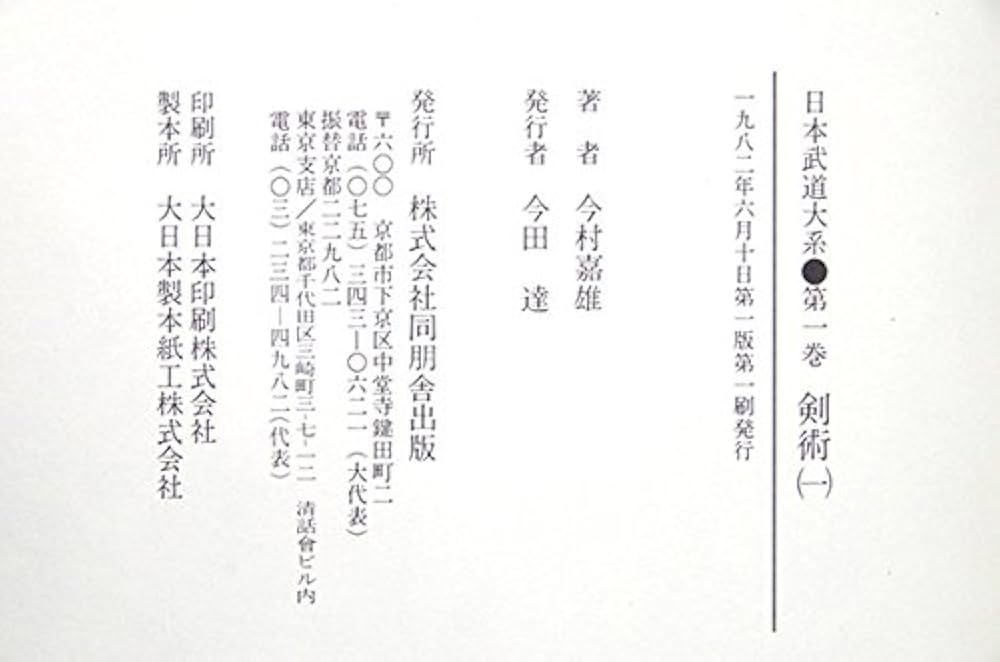 日本武道大系●第一巻 剣術㈠
一九八二年六月十日第一版第一刷発行
著者 今村嘉雄
発行者 今田 達
発行所 株式会社同朋舎出版
〒六〇〇 京都市下京区中堂寺鍵田町二
電話（〇七五）三四三―〇六二一（大代表）
振替京都二二九八二
東京支店／東京都千代田区三崎町三-七-一二 清話會ビル内
電話（〇三）二三四―四九八二（代表）
印刷所 大日本印刷株式会社
製本所 大日本製本紙工株式会社